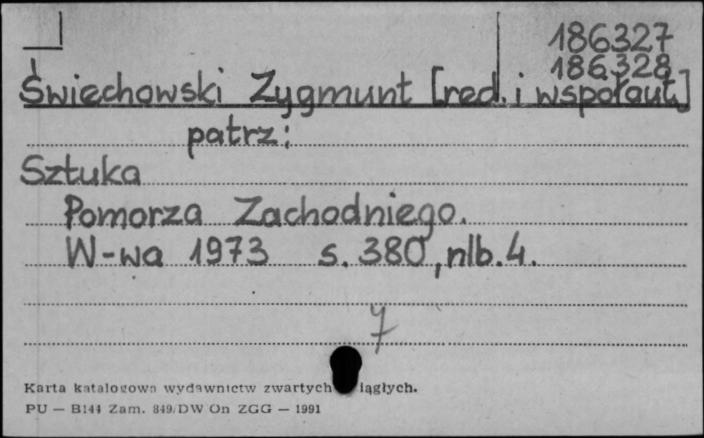 186327
186328
Świechowski Zygmunt [red. i współaut.]
patrz:
Sztuka
Pomorza Zachodniego.
W-wa 1973 s. 380, nlb. 4.
7
Karta katalogowa wydawnictw zwartych iągłych.
PU — B144 Zam. 849/DW On ZGG — 1991